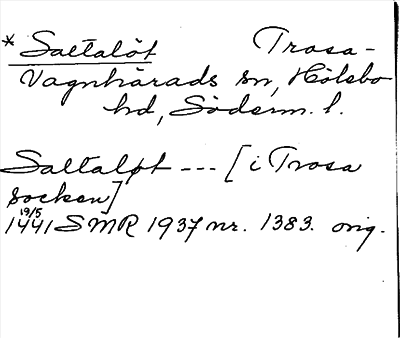 * Saltalöt Trosa-
Vagnhärads sn, Hölebo
hd, Söderm. l.
Saltaløt --- [i Trosa
socken]
19/5
1441 SMR 1937 nr. 1383. orig.